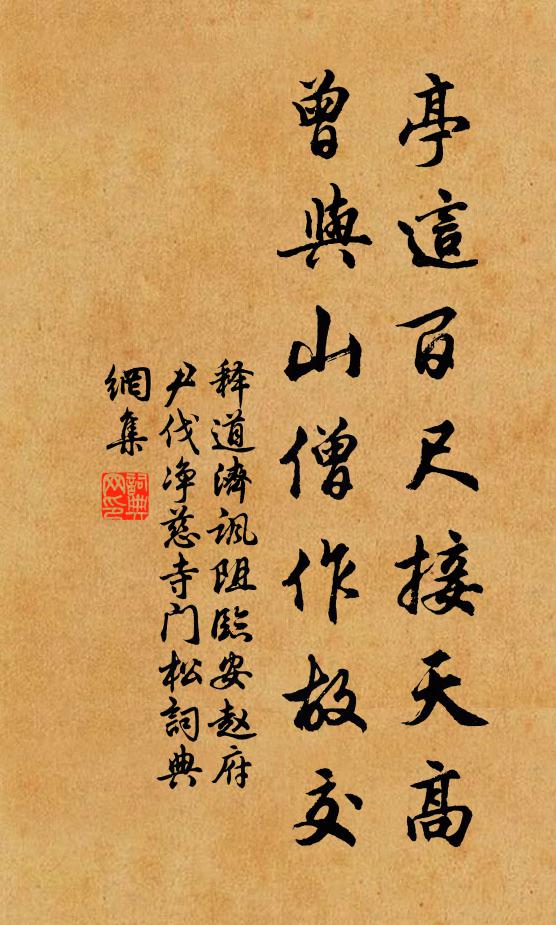 亭這百尺接天高
曾與山僧作故交
释道濟諷阻臨安赵府
尹伐净慈寺门松詞典
網集
詞典
网印